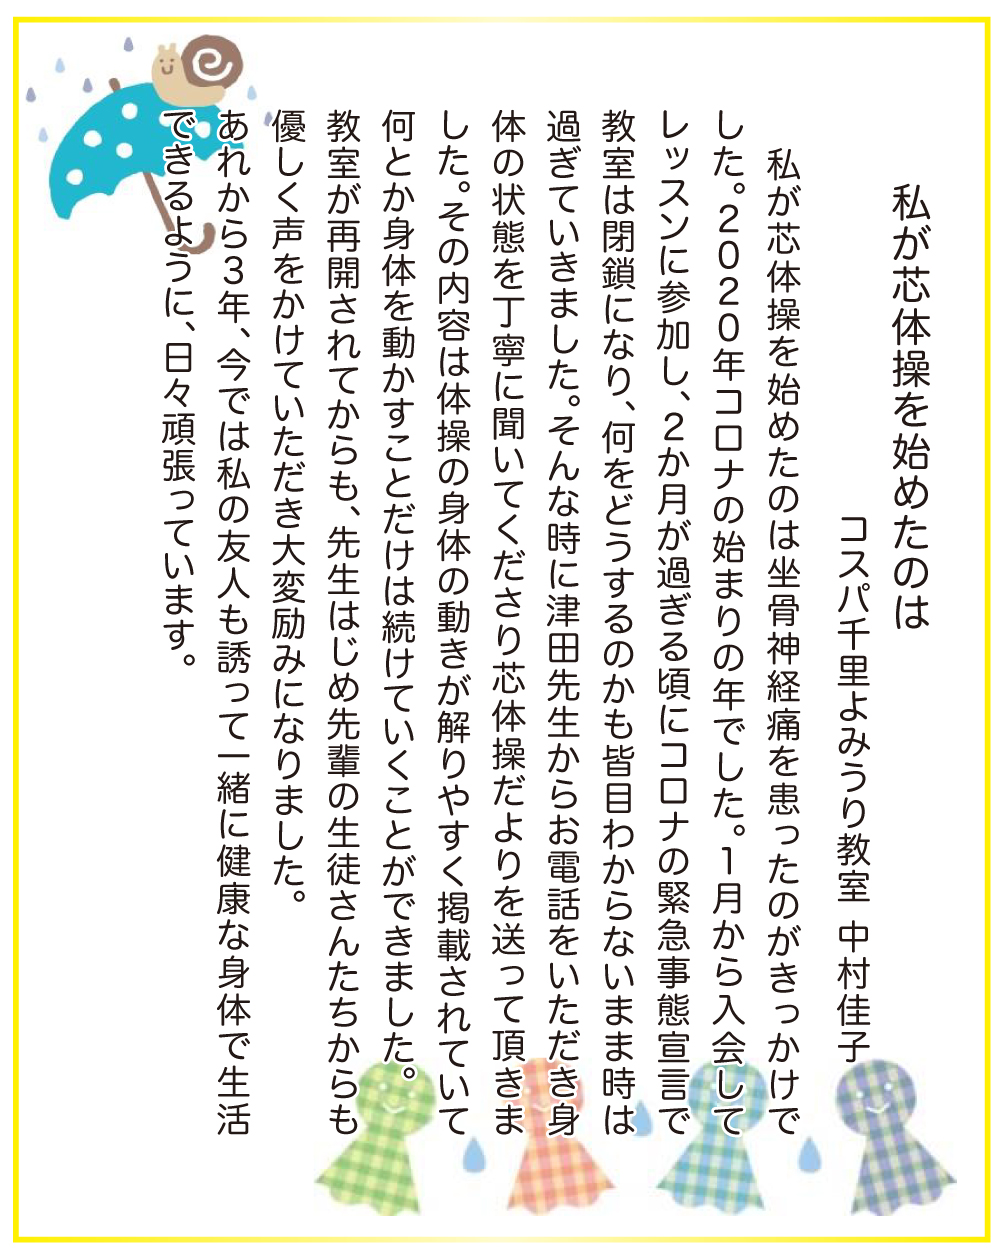 私が芯体操を始めたのは
コスパ千里よみうり教室 中村佳子
私が芯体操を始めたのは坐骨神経痛を患ったのがきっかけで
した。2020年コロナの始まりの年でした。1月から入会して
レッスンに参加し、2か月が過ぎる頃にコロナの緊急事態宣言で
教室は閉鎖になり、何をどうするのかも皆目わからないまま時は
過ぎていきました。そんな時に津田先生からお電話をいただき身
体の状態を丁寧に聞いてくださり芯体操だよりを送って頂きま
した。その内容は体操の身体の動きが解りやすく掲載されていて
何とか身体を動かすことだけは続けていくことができました。
教室が再開されてからも、先生はじめ先輩の生徒さんたちからも
優しく声をかけていただき大変励みになりました。
あれから3年、今では私の友人も誘って一緒に健康な身体で生活
できるように、日々頑張っています。